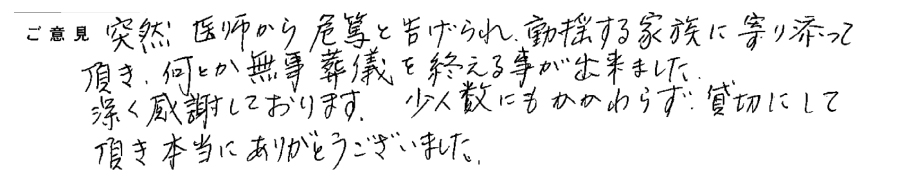 ご意見 突然 医師から危篤と告げられ、動揺する家族に寄り添って
頂き、何とか無事葬儀を終える事が出来ました。
深く感謝しております。 少人数にもかかわらず、貸切にして
頂き本当にありがとうございました。